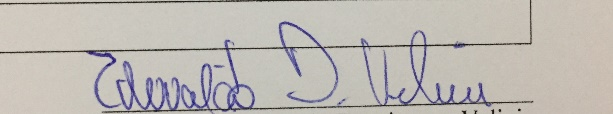 Edivaldo D. Velini
Velini